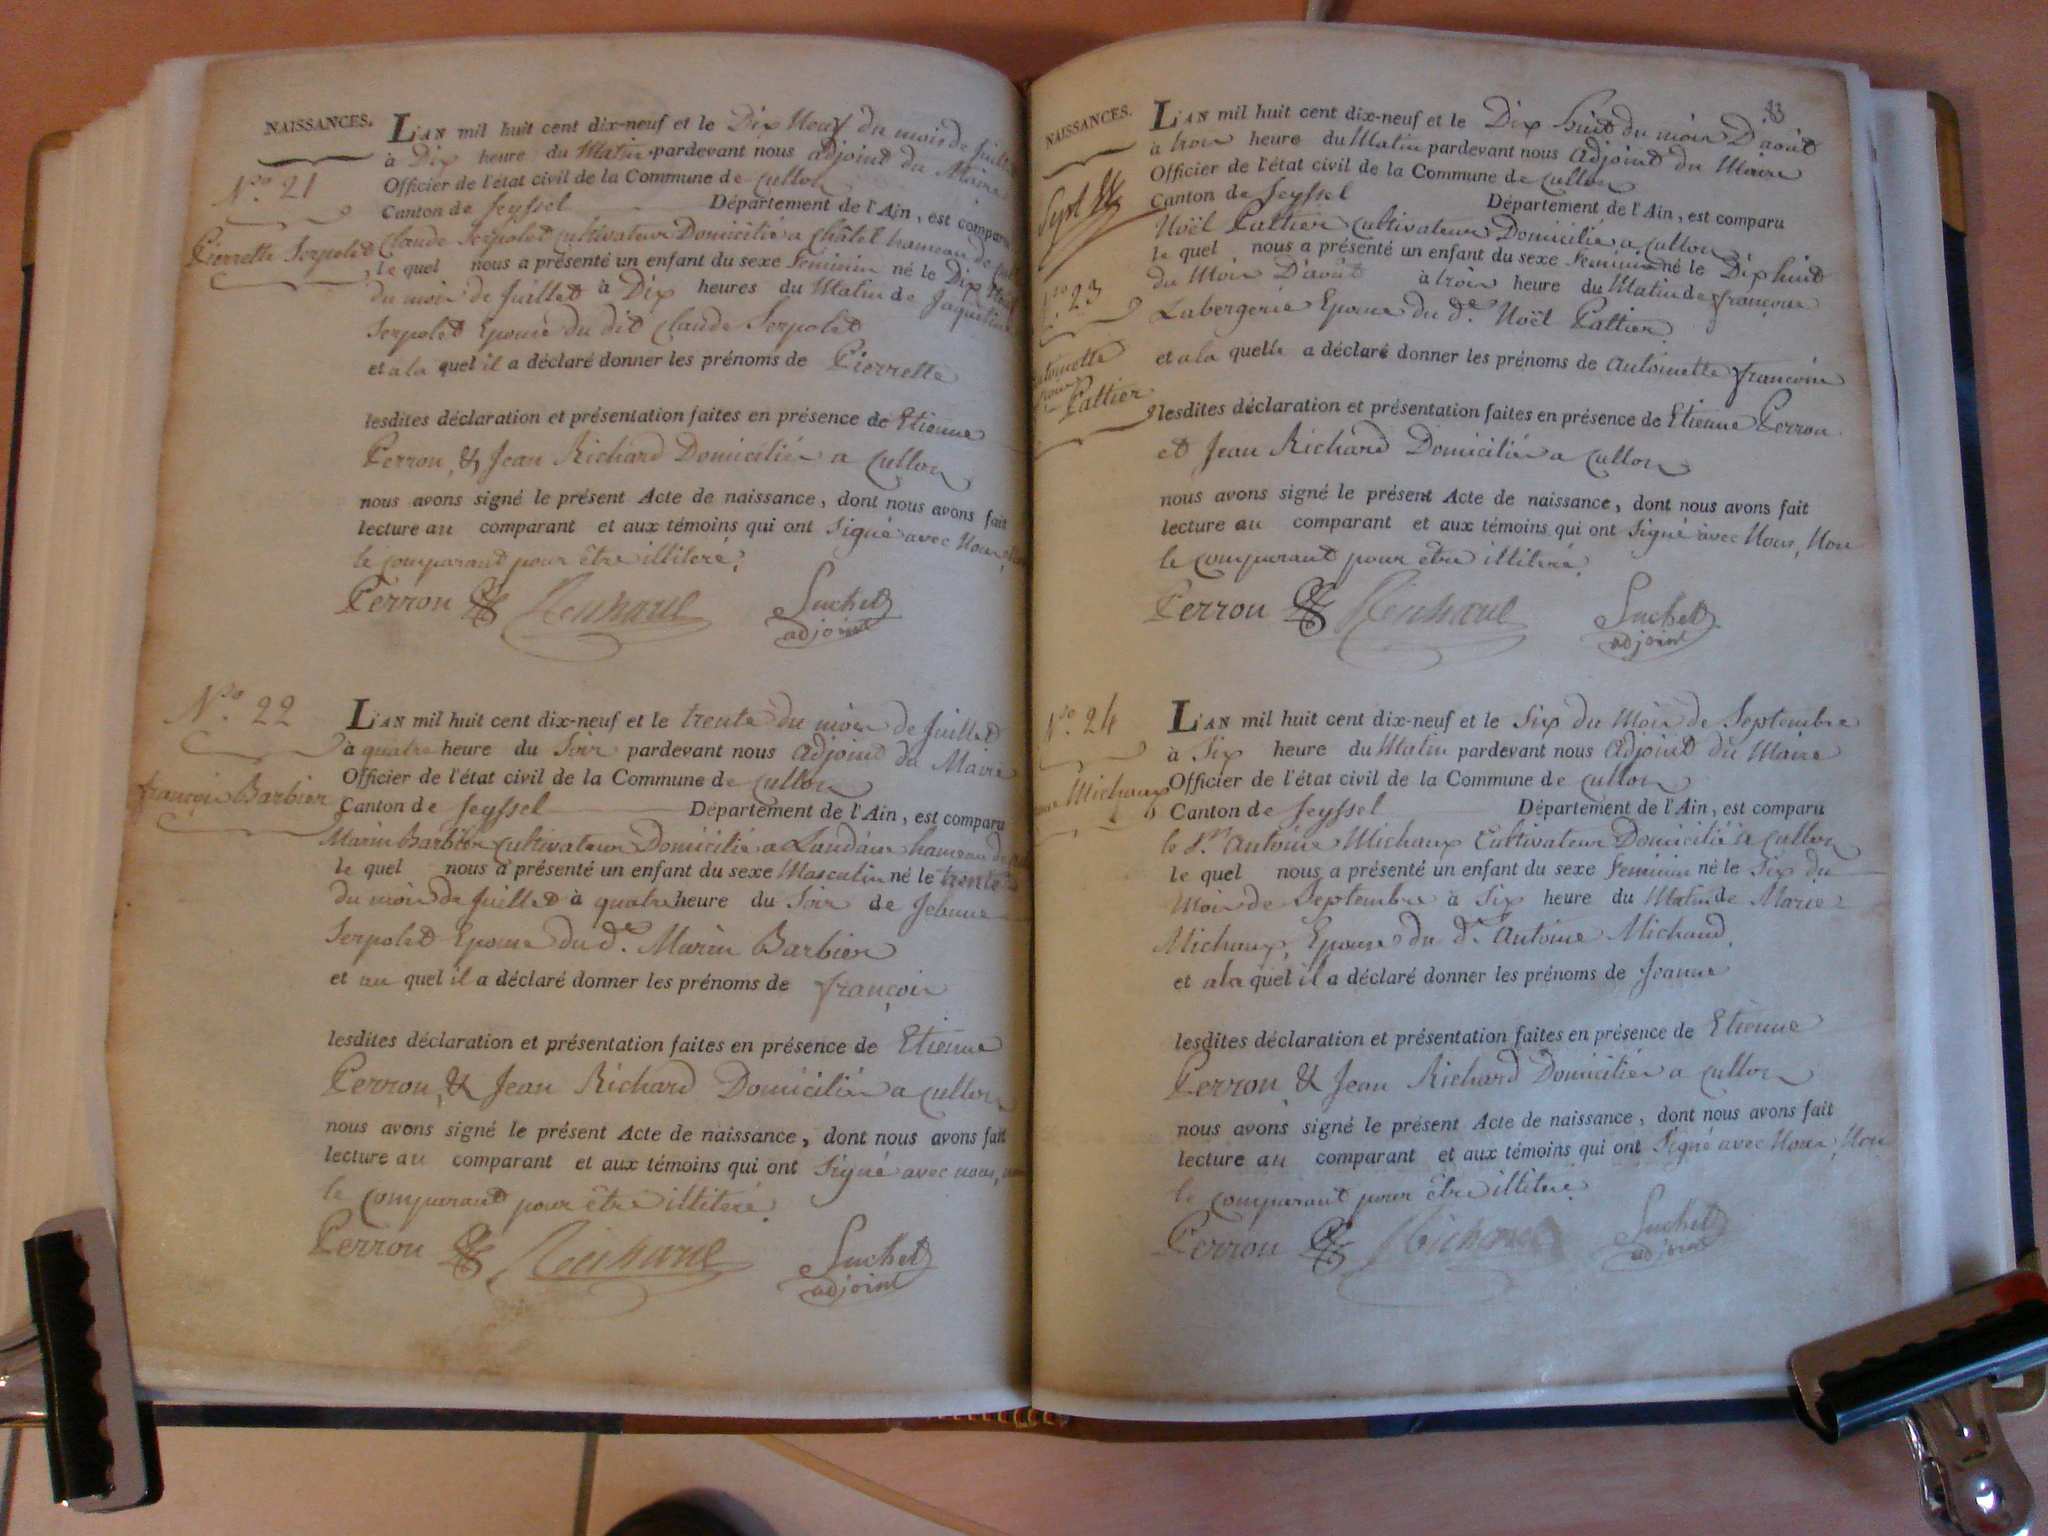 NAISSANCES.
N.ro 21
Pierrette Serpolet
L'AN mil huit cent dix-neuf et le Dix Neuf du mois de Juillet
à Dix heure du Matin pardevant nous adjoint du Maire
Officier de l'état civil de la Commune de Cullon
Canton de Seyssel Département de l'Ain, est comparu
Claude Serpolet Cultivateur Domicilié a Châtel hameau de
le quel nous a présenté un enfant du sexe Feminin né le Dix Neuf
du mois de Juillet à Dix heures du Matin de Jaqueline
Serpolet Epouse du dit Claude Serpolet
et a la quel il a déclaré donner les prénoms de Pierrette
lesdites déclaration et présentation faites en présence de Etienne
Perron, & Jean Richard Domicilié a Cullon
nous avons signé le présent Acte de naissance, dont nous avons fait
lecture au comparant et aux témoins qui ont Signé avec Nous,
le comparant pour être illiteré.
Perron Richard Suchet
adjoint
N.ro 22
françois Barbier
L'AN mil huit cent dix-neuf et le trente du mois de Juillet
à quatre heure du Soir pardevant nous Adjoint du Maire
Officier de l'état civil de la Commune de Cullon
Canton de Seyssel Département de l'Ain, est comparu
Marin Barbier Cultivateur Domicilié a Landaize hameau de
le quel nous a présenté un enfant du sexe Masculin né le trente
du mois de Juillet à quatre heure du Soir de
Serpolet Epouse du d.t Marin Barbier
et au quel il a déclaré donner les prénoms de françois
lesdites déclaration et présentation faites en présence de Etienne
Perron, & Jean Richard Domicilié a Cullon
nous avons signé le présent Acte de naissance, dont nous avons fait
lecture au comparant et aux témoins qui ont Signé avec nous,
le comparant pour être illiteré.
Perron Richard Suchet
adjoint
83
NAISSANCES.
Sept
N.ro 23
Antoinette
Pattier
L'AN mil huit cent dix-neuf et le Dix huit du mois D'août
à trois heure du Matin pardevant nous Adjoint du Maire
Officier de l'état civil de la Commune de Cullon
Canton de Seyssel Département de l'Ain, est comparu
Noël Pattier Cultivateur Domicilié a Cullon
le quel nous a présenté un enfant du sexe Feminin né le Dix huit
du Mois D'août à trois heure du Matin de françoise
Labergerie Epouse du d.t Noël Pattier
et a la quelle a déclaré donner les prénoms de Antoinette françoise
lesdites déclaration et présentation faites en présence de Etienne Perron
et Jean Richard Domicilié a Cullon
nous avons signé le présent Acte de naissance, dont nous avons fait
lecture au comparant et aux témoins qui ont Signé avec Nous, Non
le comparant pour être illiteré.
Perron Richard Suchet
adjoint
N.ro 24
Michaux
L'AN mil huit cent dix-neuf et le Six du Mois de Septembre
à Six heure du Matin pardevant nous Adjoint du Maire
Officier de l'état civil de la Commune de Cullon
Canton de Seyssel Département de l'Ain, est comparu
le S.r Antoine Michaux Cultivateur Domicilié a Cullon
le quel nous a présenté un enfant du sexe Feminin né le Six du
Mois de Septembre à Six heure du Matin de Marie
Michaux, Epouse du d.t Antoine Michaud
et a la quel il a déclaré donner les prénoms de Jeanne
lesdites déclaration et présentation faites en présence de Etienne
Perron, & Jean Richard Domicilié a Cullon
nous avons signé le présent Acte de naissance, dont nous avons fait
lecture au comparant et aux témoins qui ont Signé avec Nous, Non
le comparant pour être illiteré.
Perron Richard Suchet
adjoint